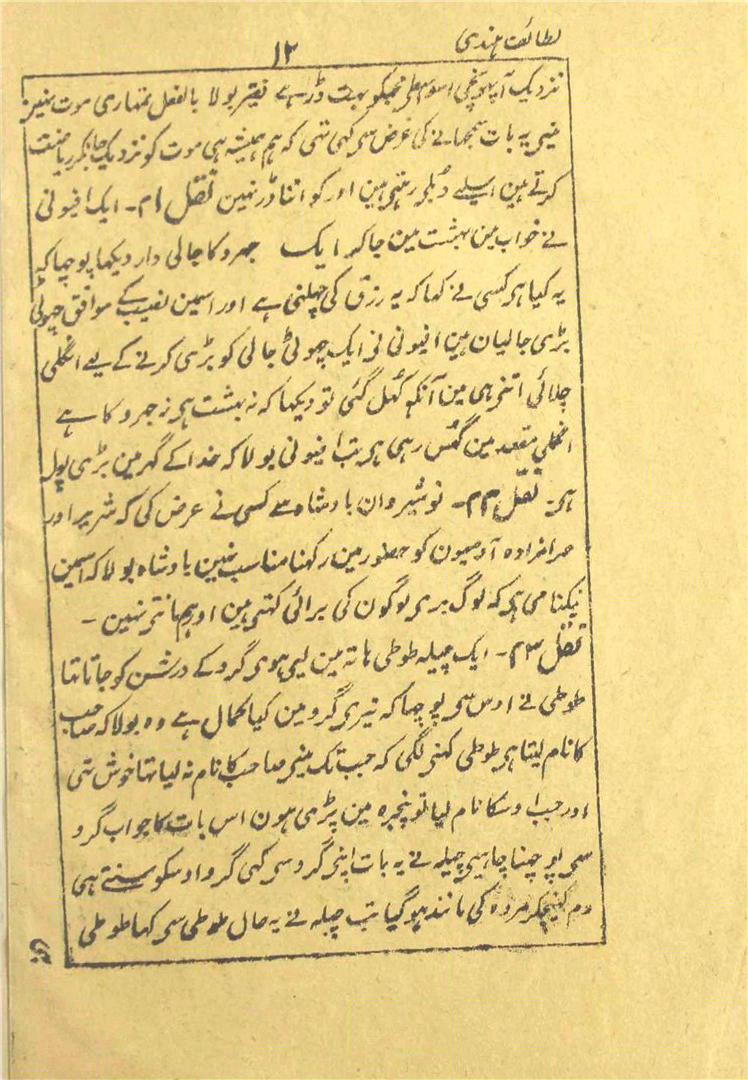 لطائف ہندی
۱۲
نزدیک آ پہونچی اسواسطی مجکو بہت ڈر ہے فقیر بولا بالفعل تمہاری موت نہین
مینی یہ بات سمجھانے کی غرض سی کہی تہی کہ ہم ہمیشہ ہی موت کو نزدیک جانکر ریاضت
کرتے ہین اسلیے دبلی رہتی ہین اور کو اتنا ڈر نہین نقل ۲۱۔ ایک افیونی
نے خواب مین بہشت مین جا کر ایک جہروکا جالی دار دیکھا پوچہا کہ
یہ کیا ہی کسی نے کہا کہ یہ رزق کی چہلنی ہے اور اسمین نصیب کے موافق چہوٹی
بڑی جالیان ہین افیونی نی ایک چہوٹی جالی کو بڑی کرنے کے لیے انگلی
چلائی اتنی ہی مین آنکہ کہل گئی تو دیکھا کہ نہ بہشت ہی نہ جہروکا ہے
انگلی مقعد مین گہس رہی ہی تب افیونی بولا کہ خدا کے گہر مین بڑی پول
ہی۔ نقل ۲۲۔ نوشیروان بادشاہ سے کسی نے عرض کی کہ شریر اور
حرامزادہ آدمیون کو حضور مین رکہنا مناسب نہین بادشاہ بولا کہ اسمین
نیکنامی ہی کہ لوگ بری لوگون کی برائی کہتی ہین اور ہم مانتی نہین۔
نقل ۲۳۔ ایک چیلہ طوطی ہاتہ مین لیی ہوی گرو کے درشن کو جاتا تہا
طوطی نے اوس سی پوچہا کہ تیری گرو مین کیا کمال ہے وہ بولا کہ صاحب
کا نام لیتا ہی طوطی کہنی لگی کہ جب تک مینی صاحب کا نام نہ لیا تہا خوش تہی
اور جب اوسکا نام لیا تو پنجرہ مین پڑی ہون اس بات کا جواب گرو
سی پوچہنا چاہیی چیلہ نے یہ بات اپنی گرو سی کہی گرو اوسکو سنتے ہی
دم کہینچکر مردہ کی مانند ہو گیا تب چیلہ نے یہ حال طوطی سی کہا طوطی